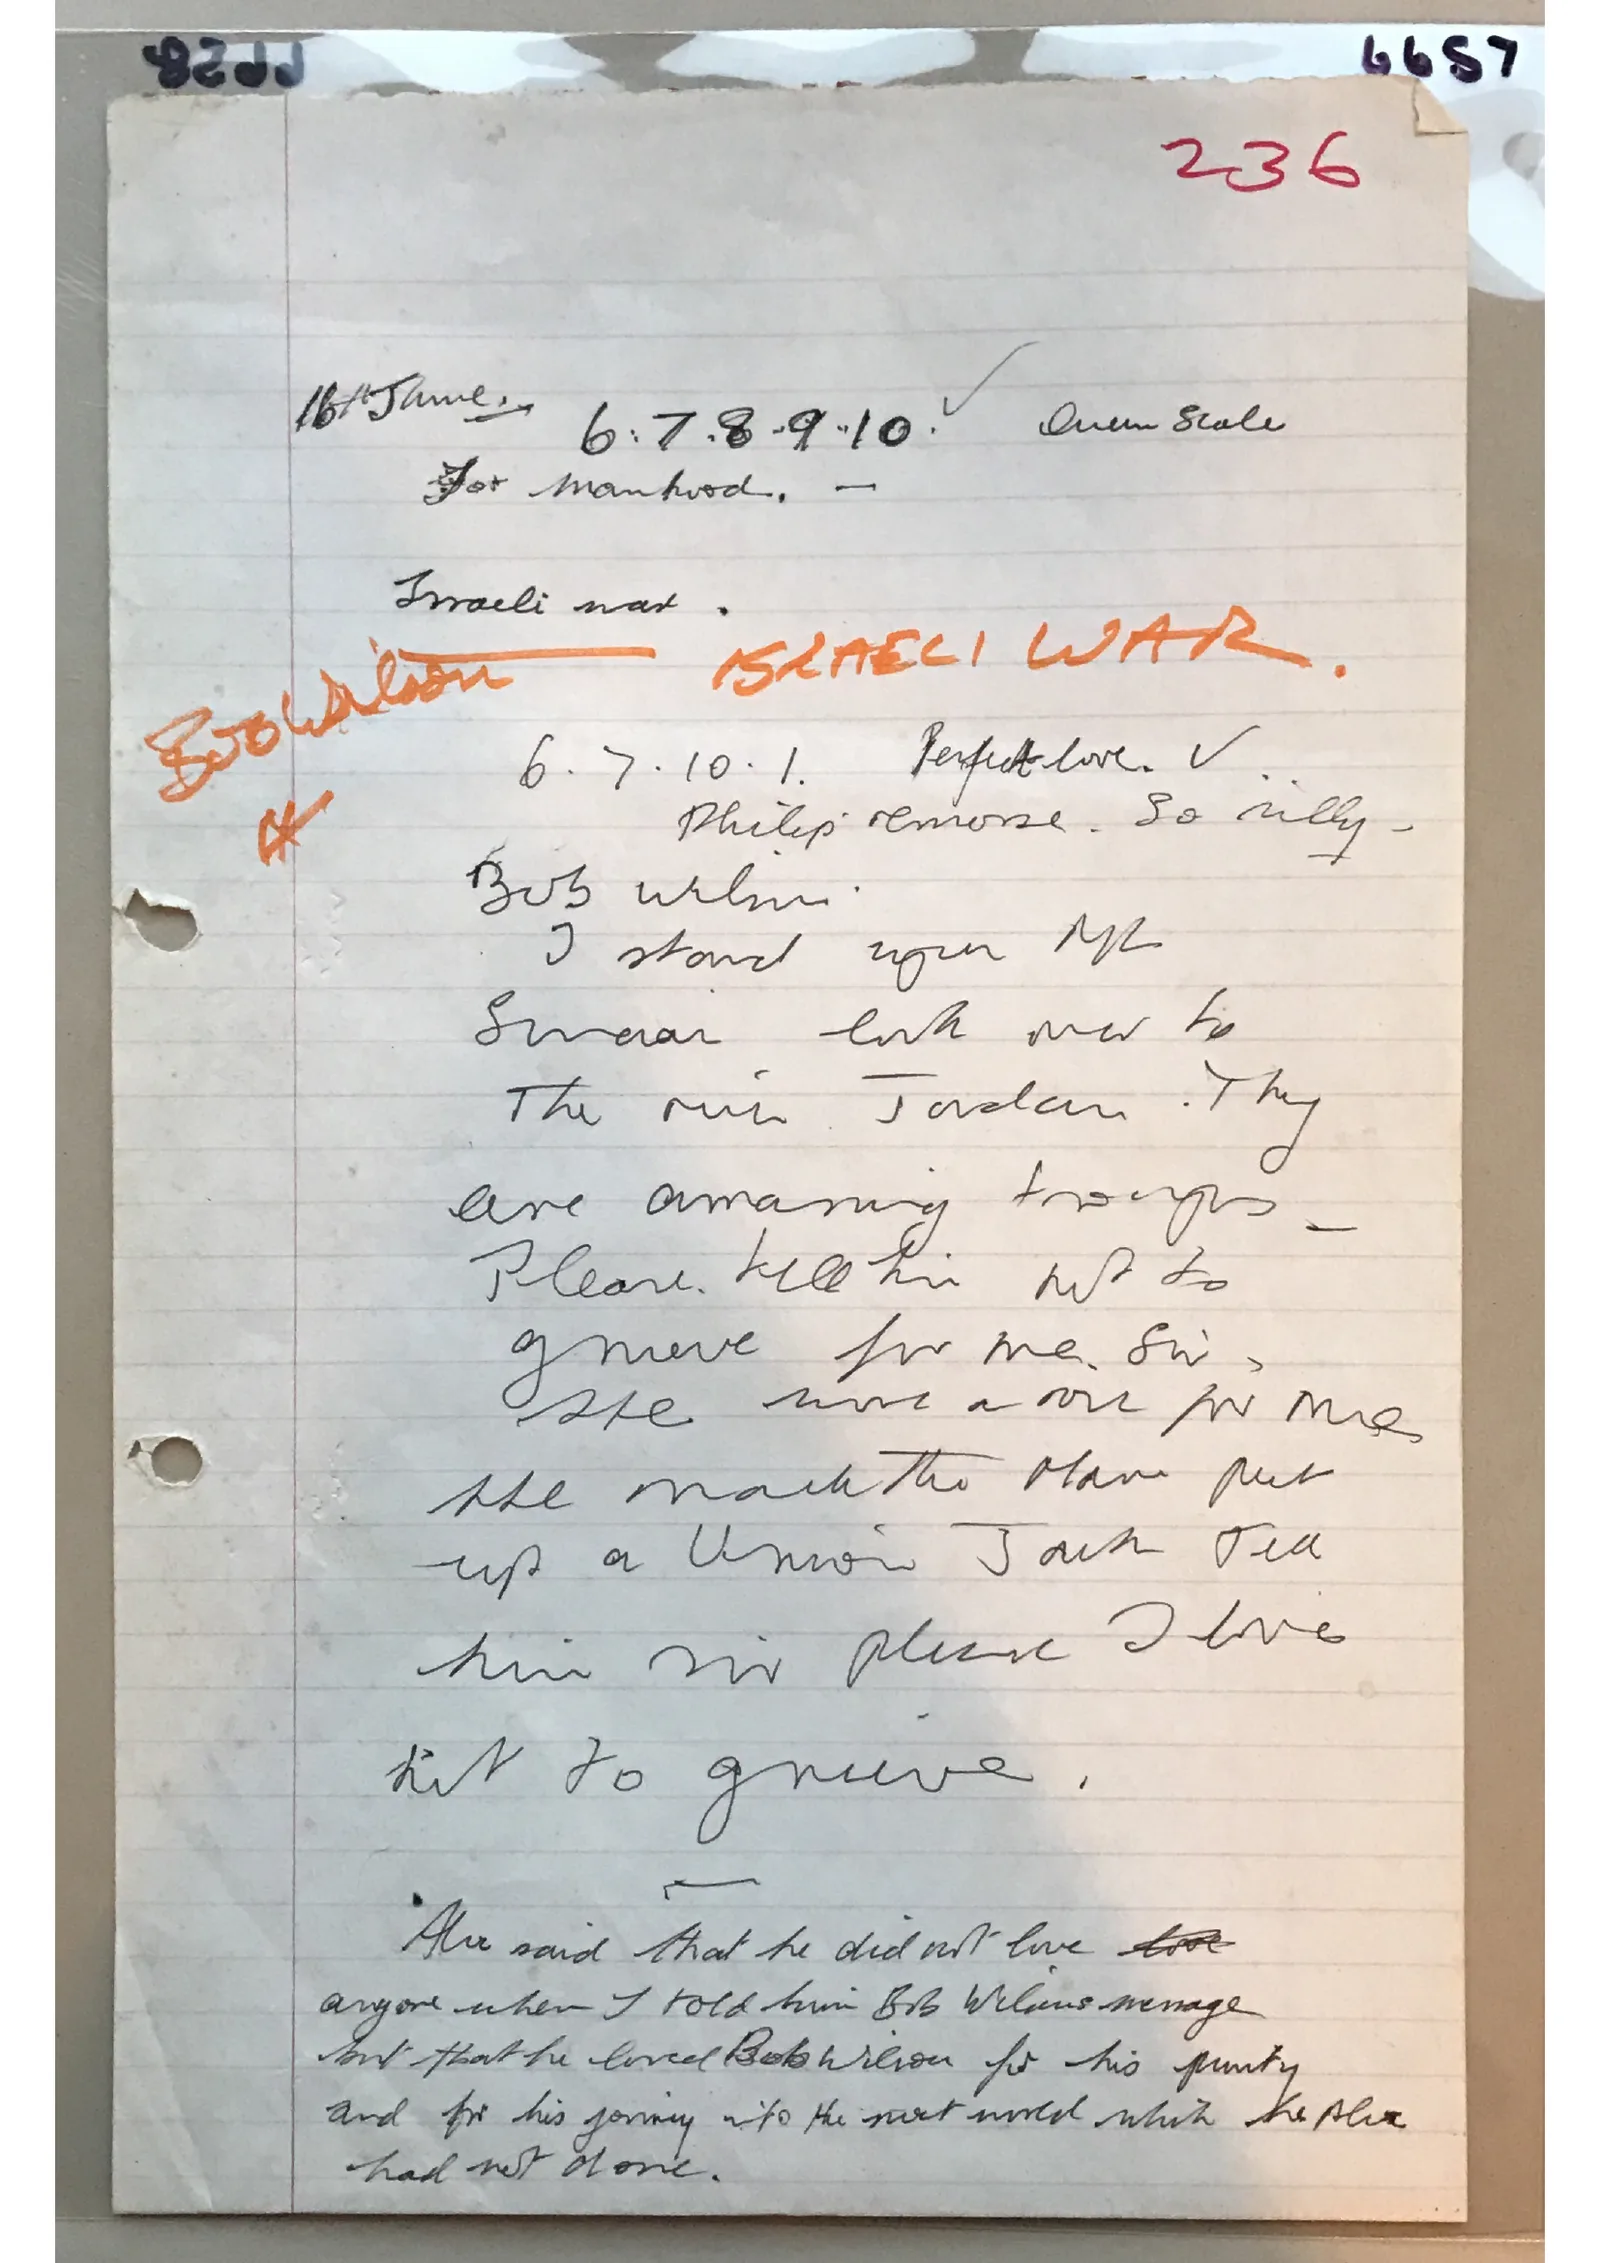 6657
236
16th June. 6.7.8.9.10. ✓ Queen Scale
For Manhood. —
Israeli war.
Bob Wilson ISRAELI WAR.
6.7.10.1. Perfect love. ✓
Philip remorse. So silly —
Bob Wilson.
I stand upon Mt
look over to
The river Jordan. They
are amazing troops —
Please. tell him not to
grieve for me. Sir,
He more for me
He the put
up a Union Jack Tell
him sir please I love
not to grieve.
Alex said that he did not love love
anyone when I told him Bob Wilsons message
but that he loved Bob Wilson for his purity
and for his jorney into the next world which he Alex
had not done.